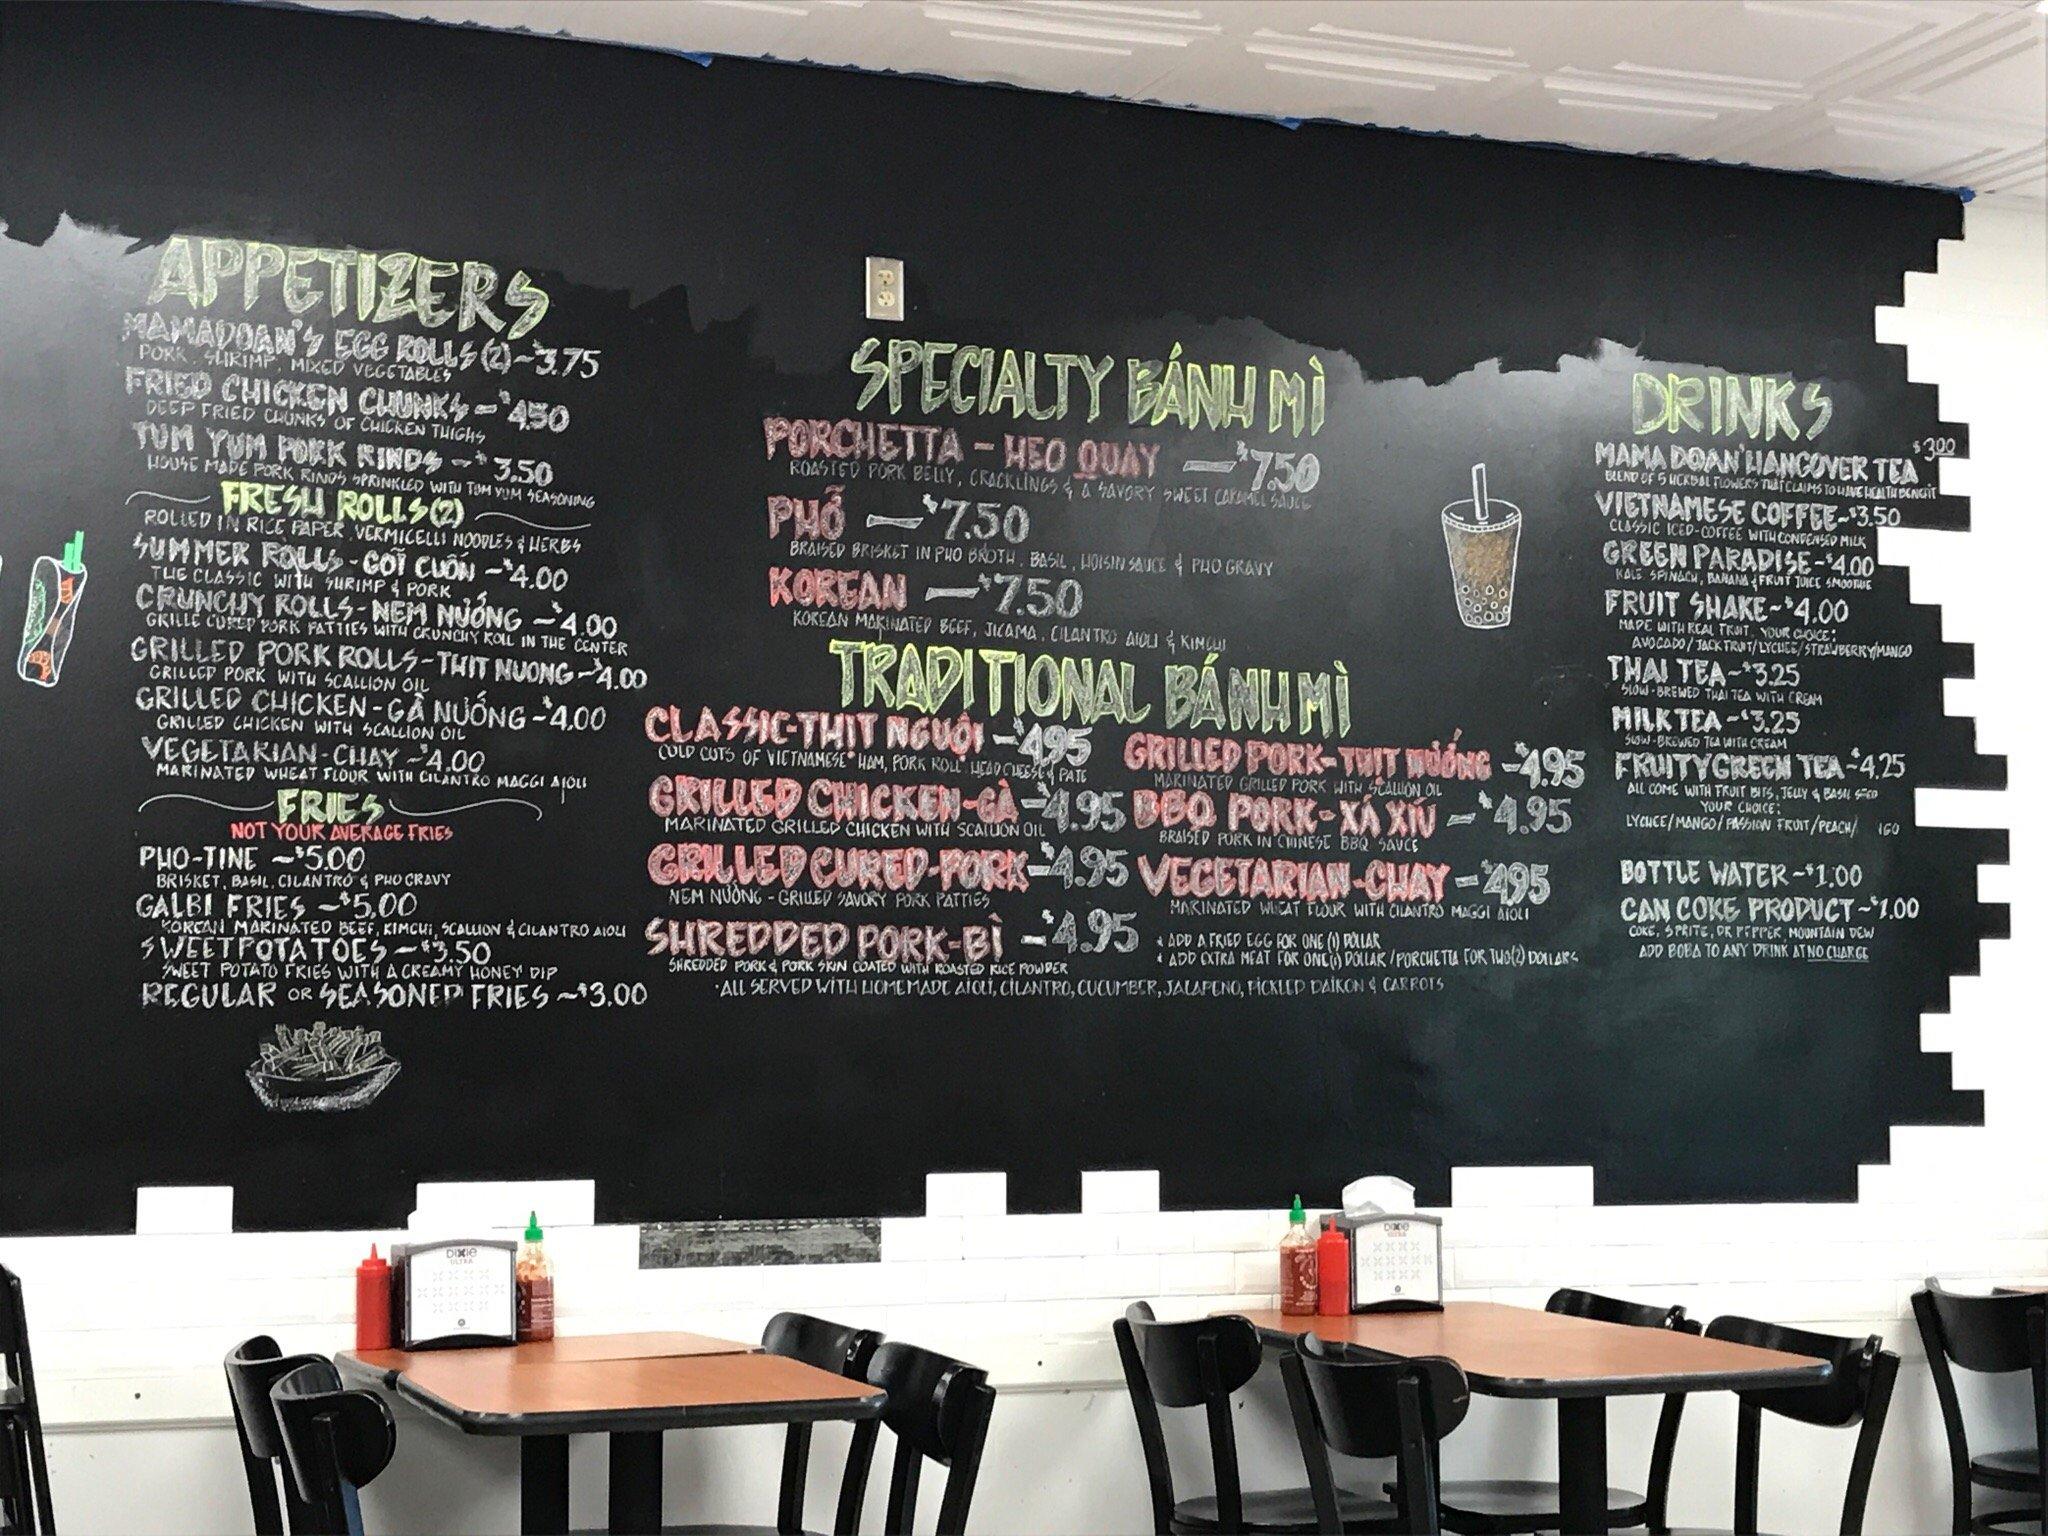 APPETIZERS
MAMADOAN'S EGG ROLLS (2) ~ $3.75
PORK, SHRIMP, MIXED VEGETABLES
FRIED CHICKEN CHUNKS - $4.50
DEEP FRIED CHUNKS OF CHICKEN THIGHS
TUM YUM PORK RINDS ~ $3.50
HOUSE MADE PORK RINDS SPRINKLED WITH TUM YUM SEASONING
FRESH ROLLS (2)
ROLLED IN RICE PAPER, VERMICELLI NOODLES & HERBS
SUMMER ROLLS - GỎI CUỐN ~ $4.00
THE CLASSIC WITH SHRIMP & PORK
CRUNCHY ROLLS - NEM NƯỚNG ~ $4.00
GRILLE CURED PORK PATTIES WITH CRUNCHY ROLL IN THE CENTER
GRILLED PORK ROLLS - THIT NUONG ~ $4.00
GRILLED PORK WITH SCALLION OIL
GRILLED CHICKEN - GÀ NƯỚNG ~ 4.00
GRILLED CHICKEN WITH SCALLION OIL
VEGETARIAN - CHAY ~ $4.00
MARINATED WHEAT FLOUR WITH CILANTRO MAGGI AIOLI
FRIES
NOT YOUR AVERAGE FRIES
PHO-TINE ~ $5.00
BRISKET, BASIL, CILANTRO & PHO GRAVY
GALBI FRIES ~ $5.00
KOREAN MARINATED BEEF, KIMCHI, SCALLION & CILANTRO AIOLI
SWEET POTATOES ~ $3.50
SWEET POTATO FRIES WITH A CREAMY HONEY DIP
REGULAR OR SEASONED FRIES ~ $3.00
SPECIALTY BÁNH MÌ
PORCHETTA - HEO QUAY — $7.50
ROASTED PORK BELLY, CRACKLINGS & A SAVORY SWEET CARAMEL SAUCE
PHỞ — $7.50
BRAISED BRISKET IN PHO BROTH, BASIL, HOISIN SAUCE & PHO GRAVY
KOREAN — $7.50
KOREAN MARINATED BEEF, JICAMA, CILANTRO AIOLI & KIMCHI
TRADITIONAL BÁNH MÌ
CLASSIC - THIT NGUỘI - $4.95
COLD CUTS OF VIETNAMESE HAM, PORK ROLL, HEAD CHEESE & PATE
GRILLED CHICKEN - GÀ - $4.95
MARINATED GRILLED CHICKEN WITH SCALLION OIL
GRILLED CURED - PORK - $4.95
NEM NƯỚNG - GRILLED SAVORY PORK PATTIES
SHREDDED PORK - BÌ - $4.95
SHREDDED PORK & PORK SKIN COATED WITH ROASTED RICE POWDER
GRILLED PORK - THIT NƯỚNG - $4.95
MARINATED GRILLED PORK WITH SCALLION OIL
BBQ PORK - XÁ XÍU - $4.95
BRAISED PORK IN CHINESE BBQ SAUCE
VEGETARIAN - CHAY - $4.95
MARINATED WHEAT FLOUR WITH CILANTRO MAGGI AIOLI
* ADD A FRIED EGG FOR ONE (1) DOLLAR
* ADD EXTRA MEAT FOR ONE (1) DOLLAR / PORCHETTA FOR TWO (2) DOLLARS
*ALL SERVED WITH HOMEMADE AIOLI, CILANTRO, CUCUMBER, JALAPENO, PICKLED DAIKON & CARROTS
DRINKS
MAMA DOAN' HANGOVER TEA $3.00
BLEND OF 5 HERBAL FLOWERS THAT CLAIMS TO HAVE HEALTH BENEFIT
VIETNAMESE COFFEE ~ $3.50
CLASSIC ICED-COFFEE WITH CONDENSED MILK
GREEN PARADISE ~ $4.00
KALE, SPINACH, BANANA & FRUIT JUICE SMOOTHIE
FRUIT SHAKE ~ $4.00
MADE WITH REAL FRUIT, YOUR CHOICE:
AVOCADO/JACKFRUIT/LYCHEE/STRAWBERRY/MANGO
THAI TEA ~ $3.25
SLOW-BREWED THAI TEA WITH CREAM
MILK TEA ~ $3.25
SLOW-BREWED TEA WITH CREAM
FRUITY GREEN TEA ~ $4.25
ALL COME WITH FRUIT BITS, JELLY & BASIL SEED
YOUR CHOICE:
LYCHEE/MANGO/PASSION FRUIT/PEACH/
BOTTLE WATER ~ $1.00
CAN COKE PRODUCT ~ $1.00
COKE, SPRITE, DR PEPPER, MOUNTAIN DEW
ADD BOBA TO ANY DRINK AT NO CHARGE
DIXIE
ULTRA
DIXIE
ULTRA